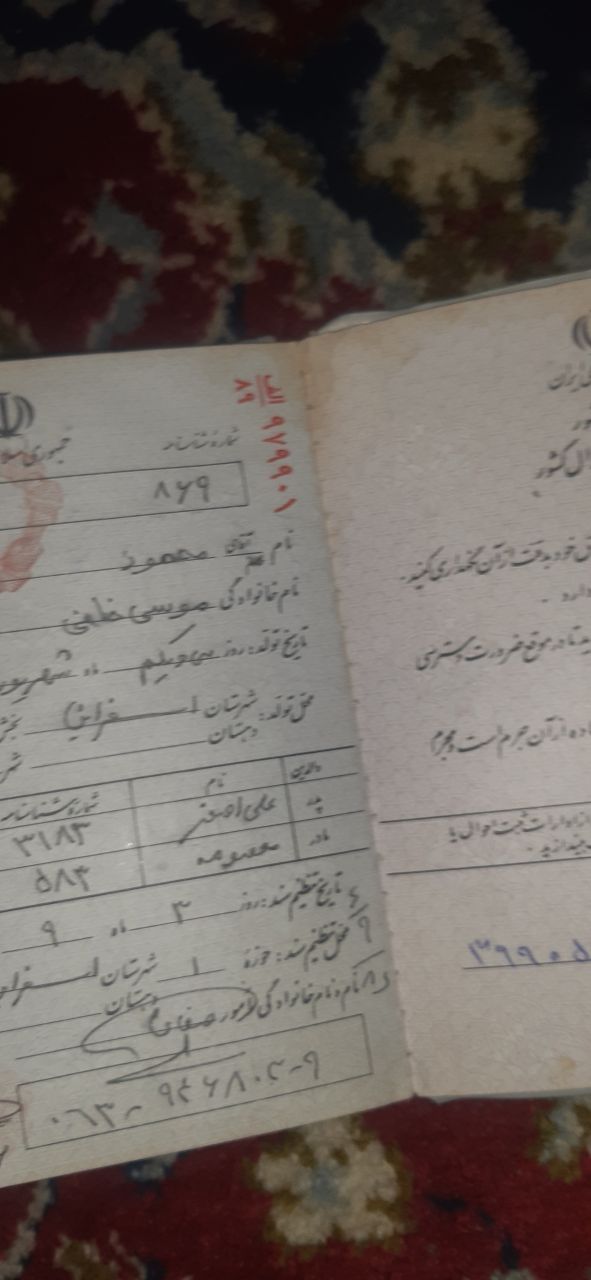 جمهوری اسلا
شماره شناسنامه
الف
۸۹
۹۷۹۹۰۱
۸۶۹
نام آقای محمود
نام خانوادگی موسی خانی
تاریخ تولد: روز سی و یکم ماه شهریور
محل تولد: شهرستان اسفراین بخش
دهستان
والدین نام شماره شناسنامه
پدر علی اصغر ۳۱۸۳
مادر معصومه ۵۸۴
تاریخ تنظیم سند: روز ۳ ماه ۹
محل تنظیم سند: حوزه ۱ شهرستان اسفرا
دهستان
نام و نام خانوادگی مامور
ی ایران
ور
ال کشور
ق خود بدقت از آن نگهداری کنید.
دارد.
ید تا در موقع ضرورت دسترسی
اده از آن جرم است و مجرم
از ادارات ثبت احوال یا
بیندازید.
۳۹۹۰۵